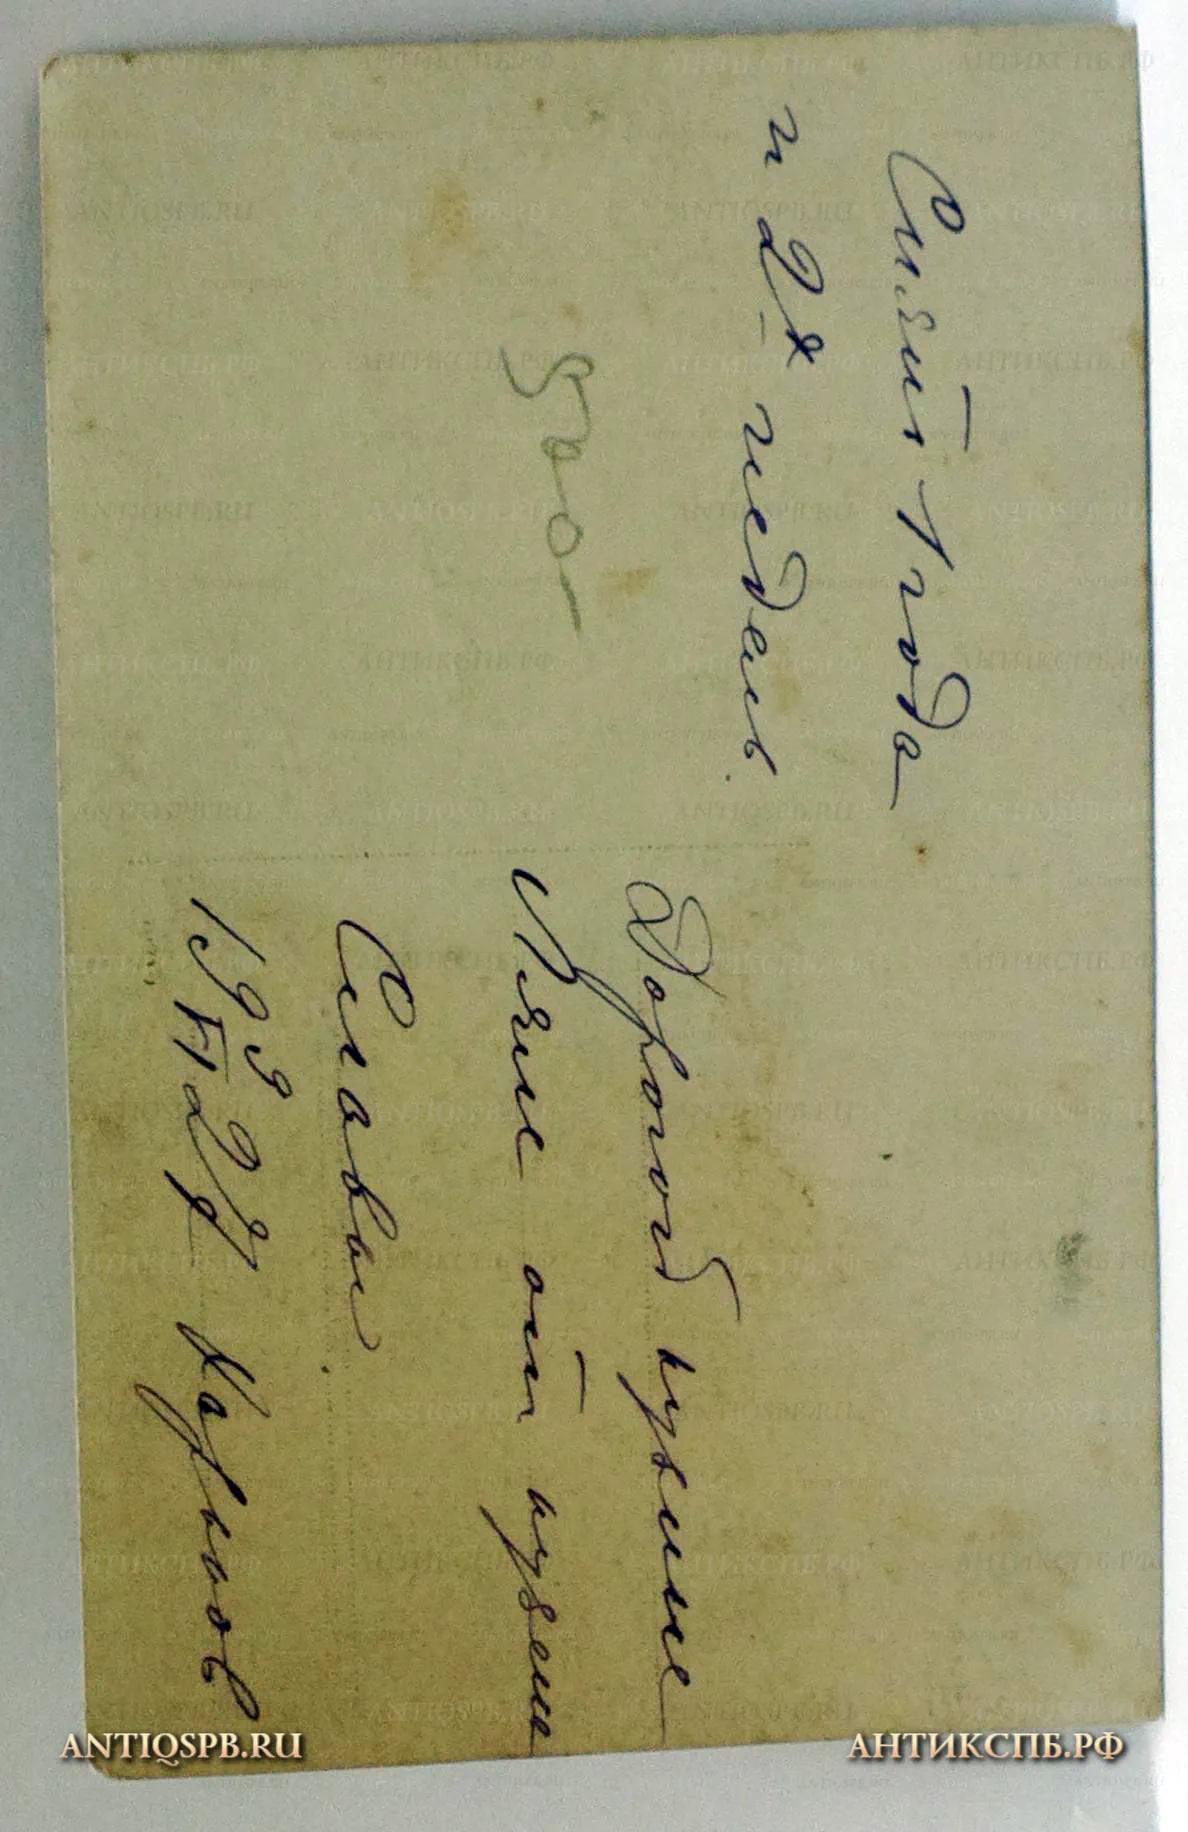 Снят 1 года
и 2х недель
500-
Дорогой кузине
Ляле от кузена
Славы.
19 9/VI 27 Харьков
ANTIQSPB.RU
АНТИКСПБ.РФ